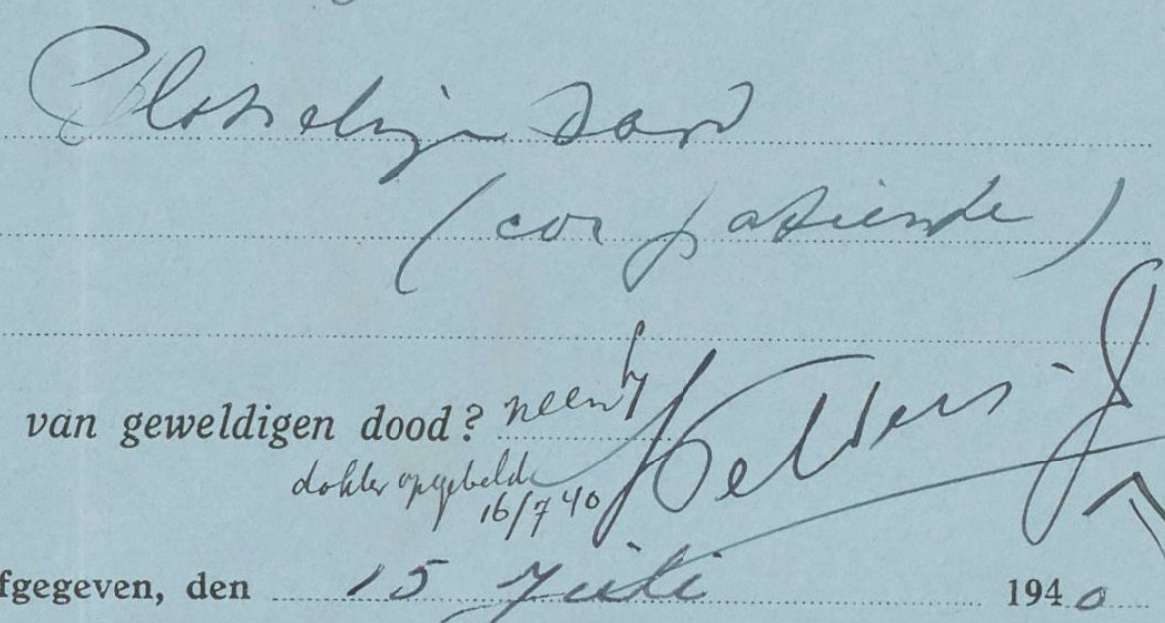 Plotselijn dood
(cor patiënte)
van geweldigen dood? neen
dokter opgebeld
16/7 40
fgegeven, den 15 Juli 1940